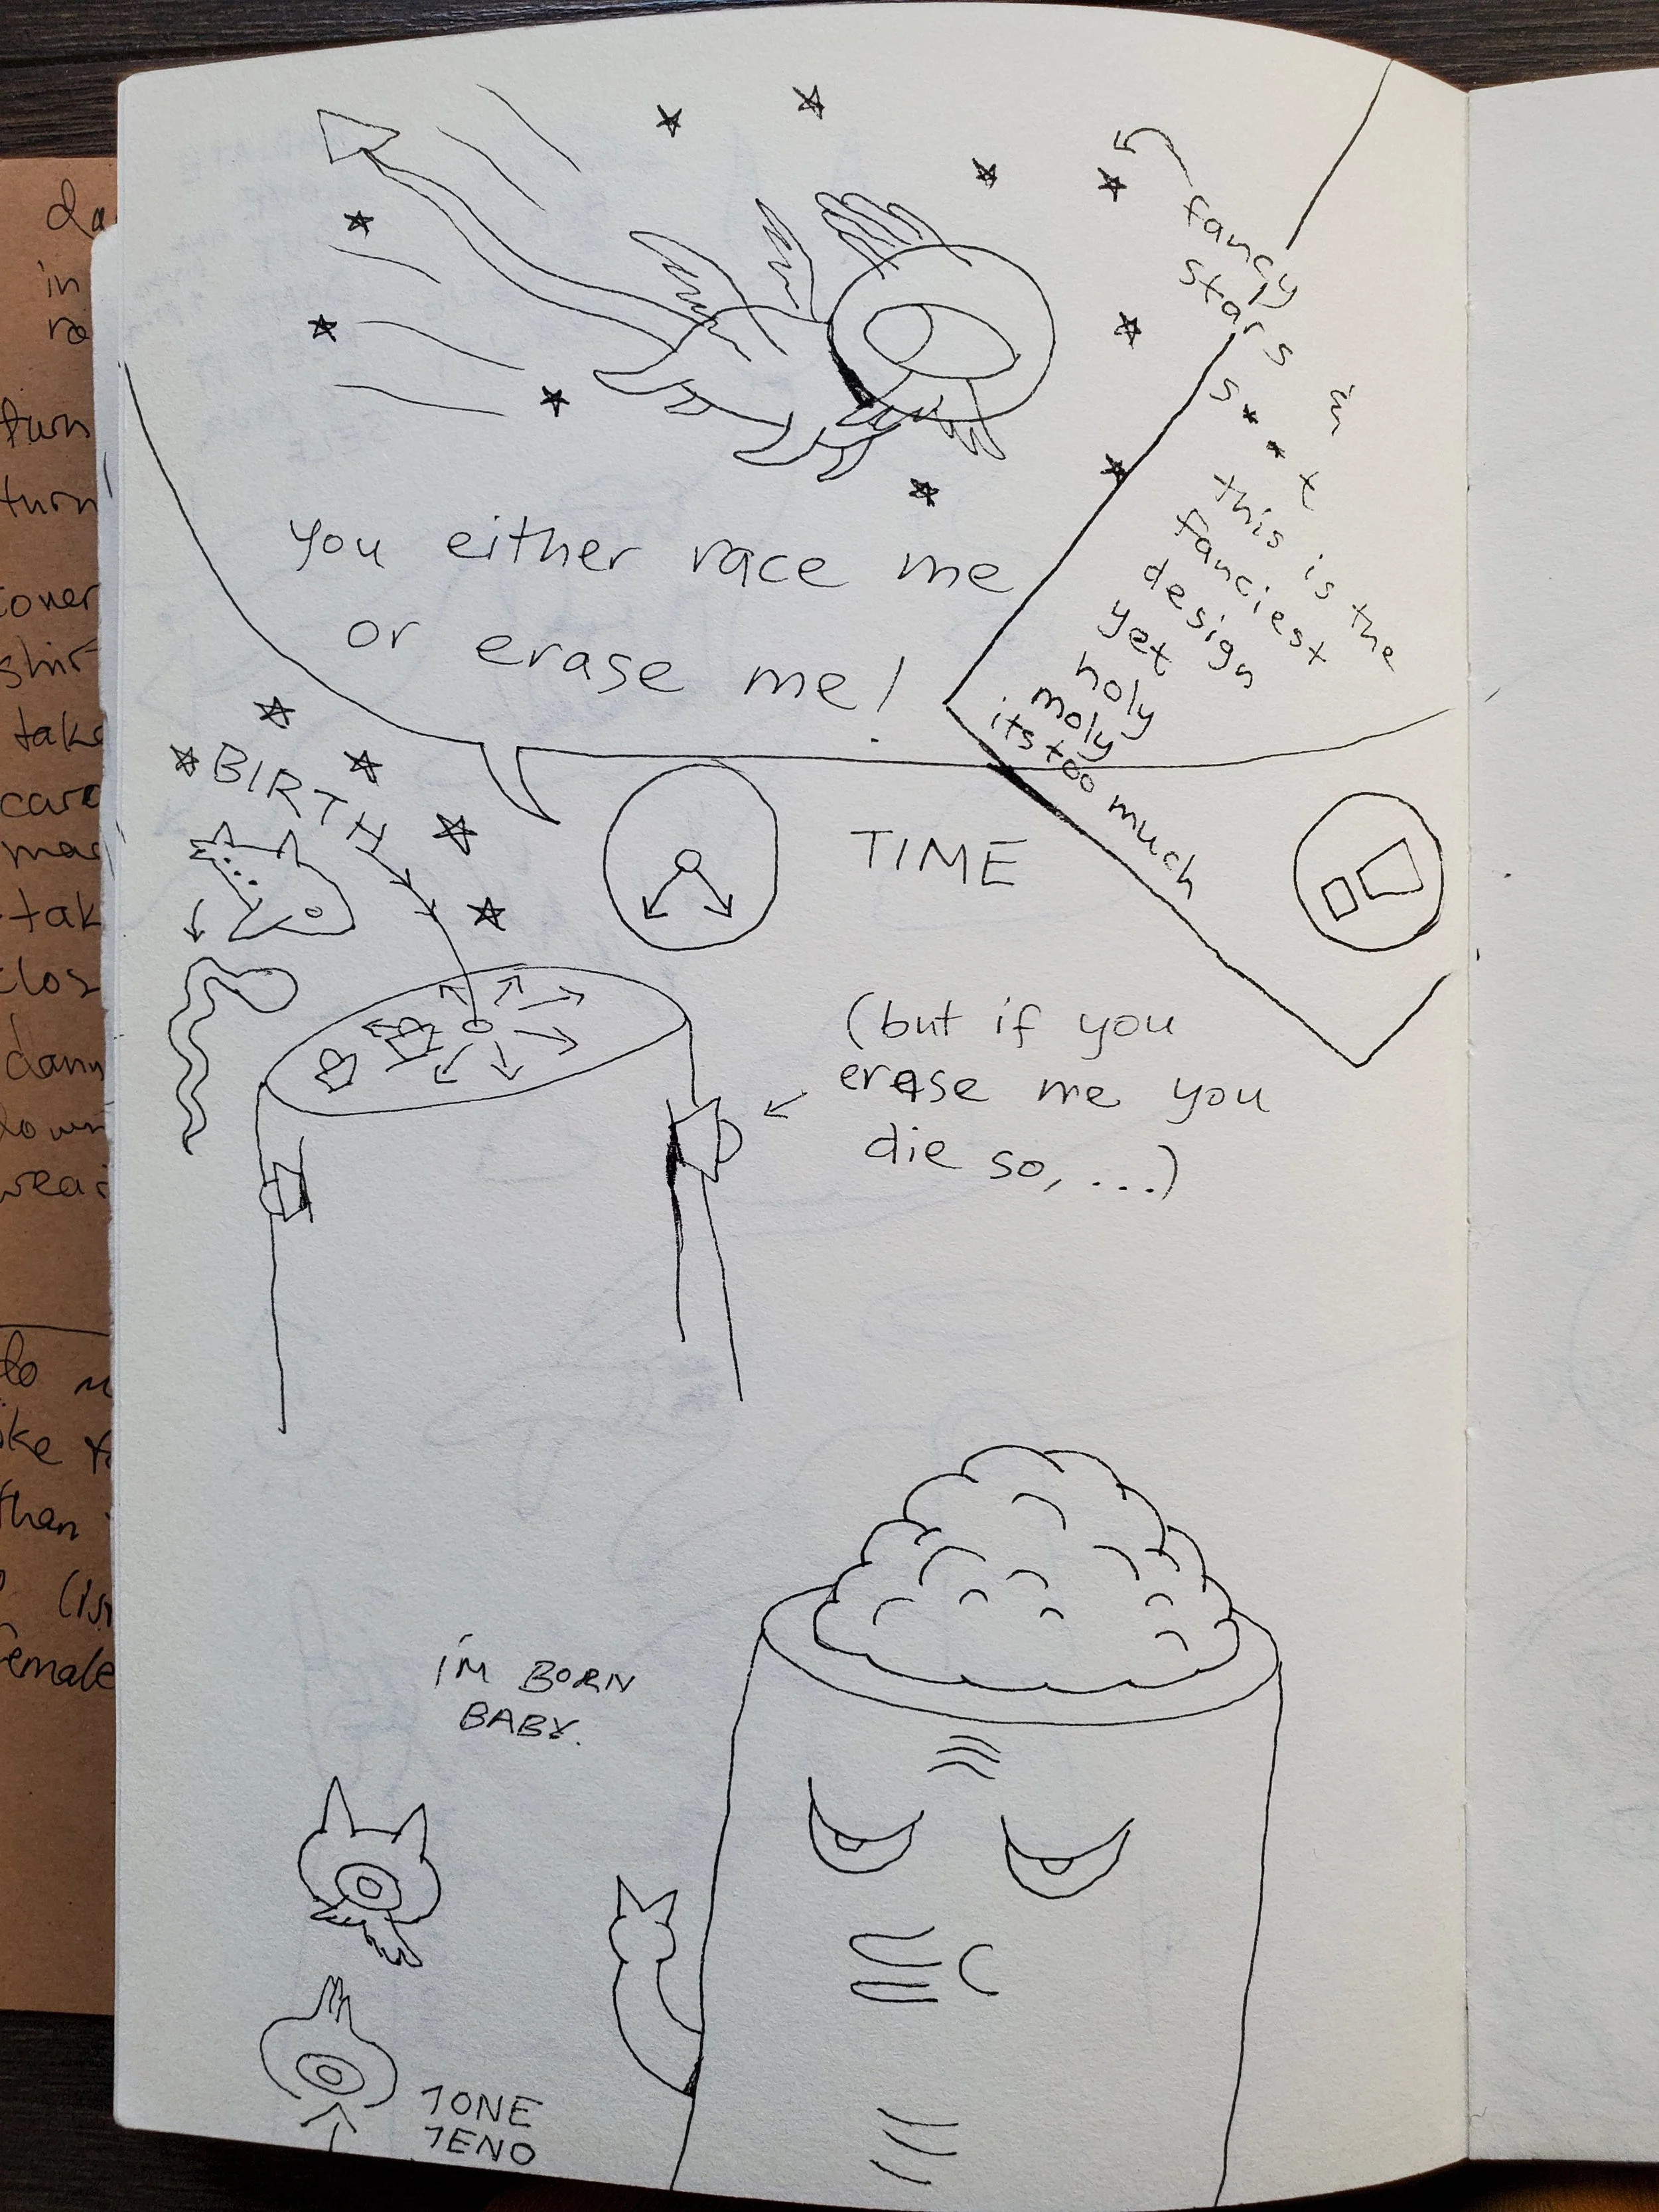 fancy
stars in
s**t
this is the
fanciest
design
yet
holy
moly
its too much
you either race me
or erase me!
BIRTH
TIME
(but if you
erase me you
die so, ...)
i'M BORN
BABY.
1ONE
1ENO
in
turn
turn
take